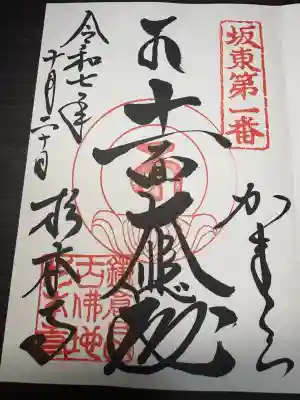 坂東第一番
かまくら
十一面大悲殿
令和七年
十月二十日
杉本寺